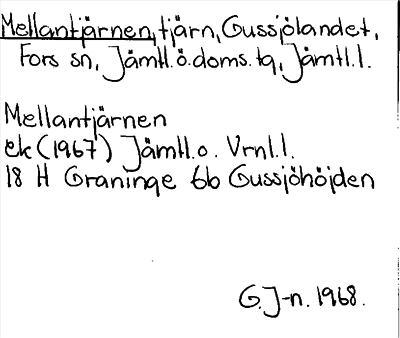 Mellantjärnen, tjärn, Gussjölandet,
Fors sn, Jämtl.ö.doms.tg, Jämtl.l.
Mellantjärnen
ek (1967) Jämtl.o. Vrnl.l.
18 H Graninge 6b Gussjöhöjden
G.J-n. 1968.